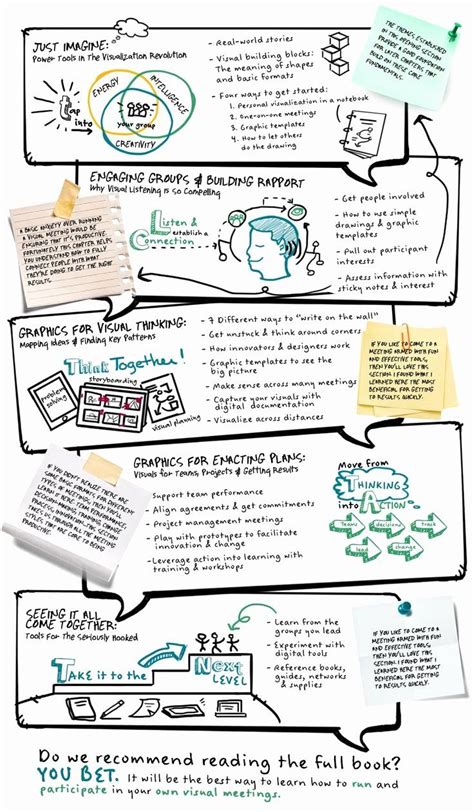 JUST IMAGINE:
Power Tools In The Visualization Revolution
Tap into
ENERGY
INTELLIGENCE
your group
CREATIVITY
- Real-world stories
- Visual building blocks:
The meaning of shapes
and basic formats
- Four ways to get started:
1. Personal visualization in a notebook
2. One-on-one meetings
3. Graphic templates
4. How to let others
do the drawing
THE THEMES ESTABLISHED
IN THE OPENING SECTION
PROVIDE A GOOD FOUNDATION
FOR LATER CHAPTERS THAT
BUILD ON THESE CORE
FUNDAMENTALS.
ENGAGING GROUPS & BUILDING RAPPORT
Why Visual Listening is So Compelling
A BASIC ANXIETY OVER RUNNING
A VISUAL MEETING WOULD BE
ENSURING THAT IT'S PRODUCTIVE.
FORTUNATELY THIS CHAPTER HELPS
YOU UNDERSTAND HOW TO FULLY
CONNECT PEOPLE WITH WHAT
THEY'RE DOING TO GET THE RIGHT
RESULTS.
Listen &
establish a
Connection
- Get people involved
- How to use simple
drawings & graphic
templates
- Pull out participant
interests
- Assess information with
sticky notes & interest
GRAPHICS FOR VISUAL THINKING:
Mapping Ideas & Finding Key Patterns
Think Together!
problem
solving
storyboarding
visual planning
- 7 Different ways to "write on the wall"
- Get unstuck & think around corners
- How innovators & designers work
- Graphic templates to see the
big picture
- Make sense across many meetings
- Capture your visuals with
digital documentation
- Visualize across distances
IF YOU LIKE TO COME TO A
MEETING NAMED WITH FUN
AND EFFECTIVE TOOLS,
THEN YOU'LL LOVE THIS
SECTION. I FOUND WHAT I
LEARNED HERE THE MOST
BENEFICIAL FOR GETTING
TO RESULTS QUICKLY.
IF YOU DON'T REALIZE THERE ARE
SOME BASIC FORMATS FOR DIFFERENT
TYPES OF MEETINGS, THEN YOU'LL
LEARN IT HERE. TEAM PERFORMANCE,
DECISION MAKING, TRAINING, CHANGE,
PROCESS, INNOVATION...THIS SECTION
STYLES THAT ARE CORE TO BEING
PRODUCTIVE.
GRAPHICS FOR ENACTING PLANS:
Visuals for Teams, Projects & Getting Results
- Support team performance
- Align agreements & get commitments
- Project management meetings
- Play with prototypes to facilitate
innovation & change
- Leverage action into learning with
training & workshops
Move from
THINKING
into ACTION
Teams
decisions
track
lead
change
SEEING IT ALL
COME TOGETHER:
Tools For The Seriously Hooked
TAKE it to the
NEXT
LEVEL
- Learn from the
groups you lead
- Experiment with
digital tools
- Reference books,
guides, networks
& supplies
IF YOU LIKE TO COME TO A
MEETING NAMED WITH FUN
AND EFFECTIVE TOOLS,
THEN YOU'LL LOVE THIS
SECTION. I FOUND WHAT I
LEARNED HERE THE MOST
BENEFICIAL FOR GETTING
TO RESULTS QUICKLY.
Do we recommend reading the full book?
YOU BET. It will be the best way to learn how to run and
participate in your own visual meetings.